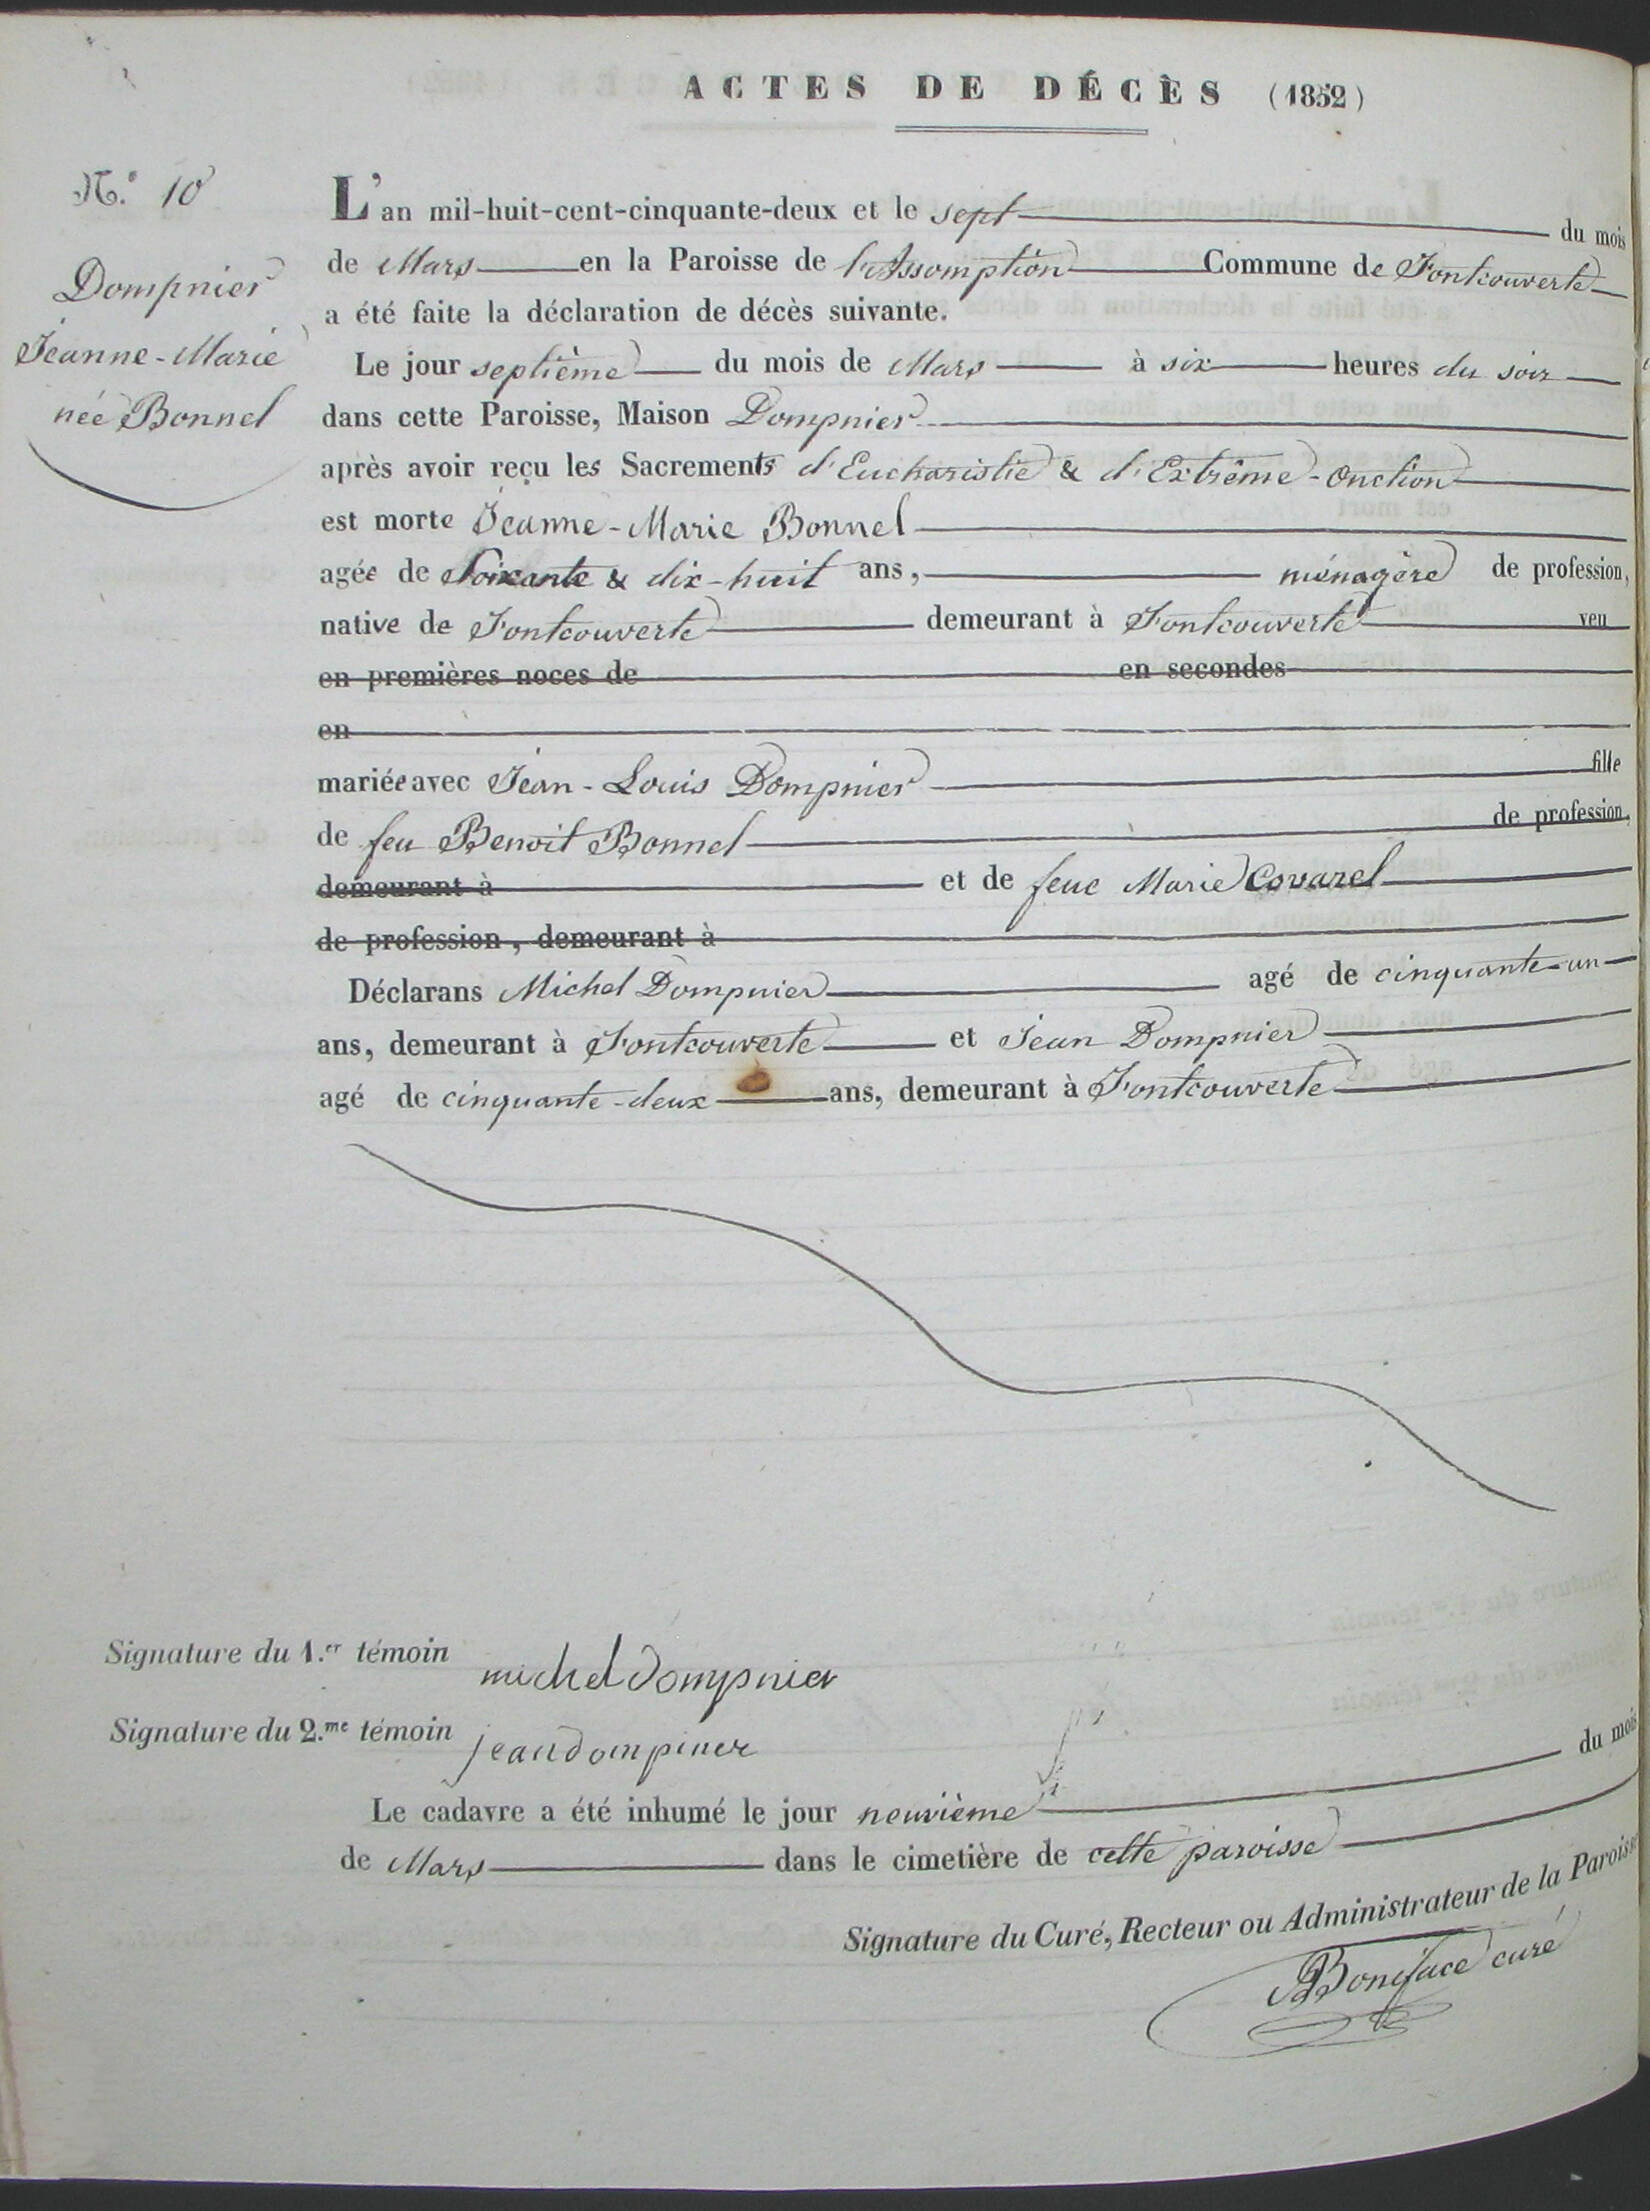 ACTES DE DÉCÈS (1852)
N.° 10
Dompnier
Jeanne-Marie
née Bonnel
L'an mil-huit-cent-cinquante-deux et le sept du mois
de Mars en la Paroisse de l'Assomption Commune de Fontcouverte
a été faite la déclaration de décès suivante.
Le jour septième du mois de Mars à six heures du soir
dans cette Paroisse, Maison Dompnier
après avoir reçu les Sacrements d'Eucharistie & d'Extrême-Onction
est morte Jeanne-Marie Bonnel
agée de Soixante & dix-huit ans, ménagère de profession,
native de Fontcouverte demeurant à Fontcouverte veu
en premières noces de en secondes
en
mariée avec Jean-Louis Dompnier fille
de feu Benoit Bonnel de profession,
demeurant à et de feue Marie Covarel
de profession, demeurant à
Déclarans Michel Dompnier agé de cinquante-un
ans, demeurant à Fontcouverte et Jean Dompnier
agé de cinquante-deux ans, demeurant à Fontcouverte
Signature du 1.er témoin michel dompnier
Signature du 2.me témoin jean dompiner
Le cadavre a été inhumé le jour neuvième du mois
de Mars dans le cimetière de cette paroisse
Signature du Curé, Recteur ou Administrateur de la Paroisse
Boniface curé